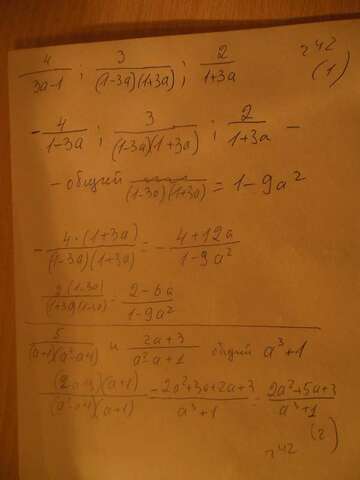 4/(3a-1) ; 3/((1-3a)(1+3a)) ; 2/(1+3a) г42 (1)
- 4/(1-3a) ; 3/((1-3a)(1+3a)) ; 2/(1+3a) -
- общий (1-3a)(1+3a) = 1-9a²
- 4·(1+3a)/((1-3a)(1+3a)) = - (4+12a)/(1-9a²)
2(1-3a)/((1+3a)(1-3a)) = (2-6a)/(1-9a²)
5/((a+1)(a²-a+1)) и (2a+3)/(a²-a+1) общий a³+1
(2a+3)(a+1)/((a²-a+1)(a+1)) = (2a²+3a+2a+3)/(a³+1) = (2a²+5a+3)/(a³+1)
г42 (2)